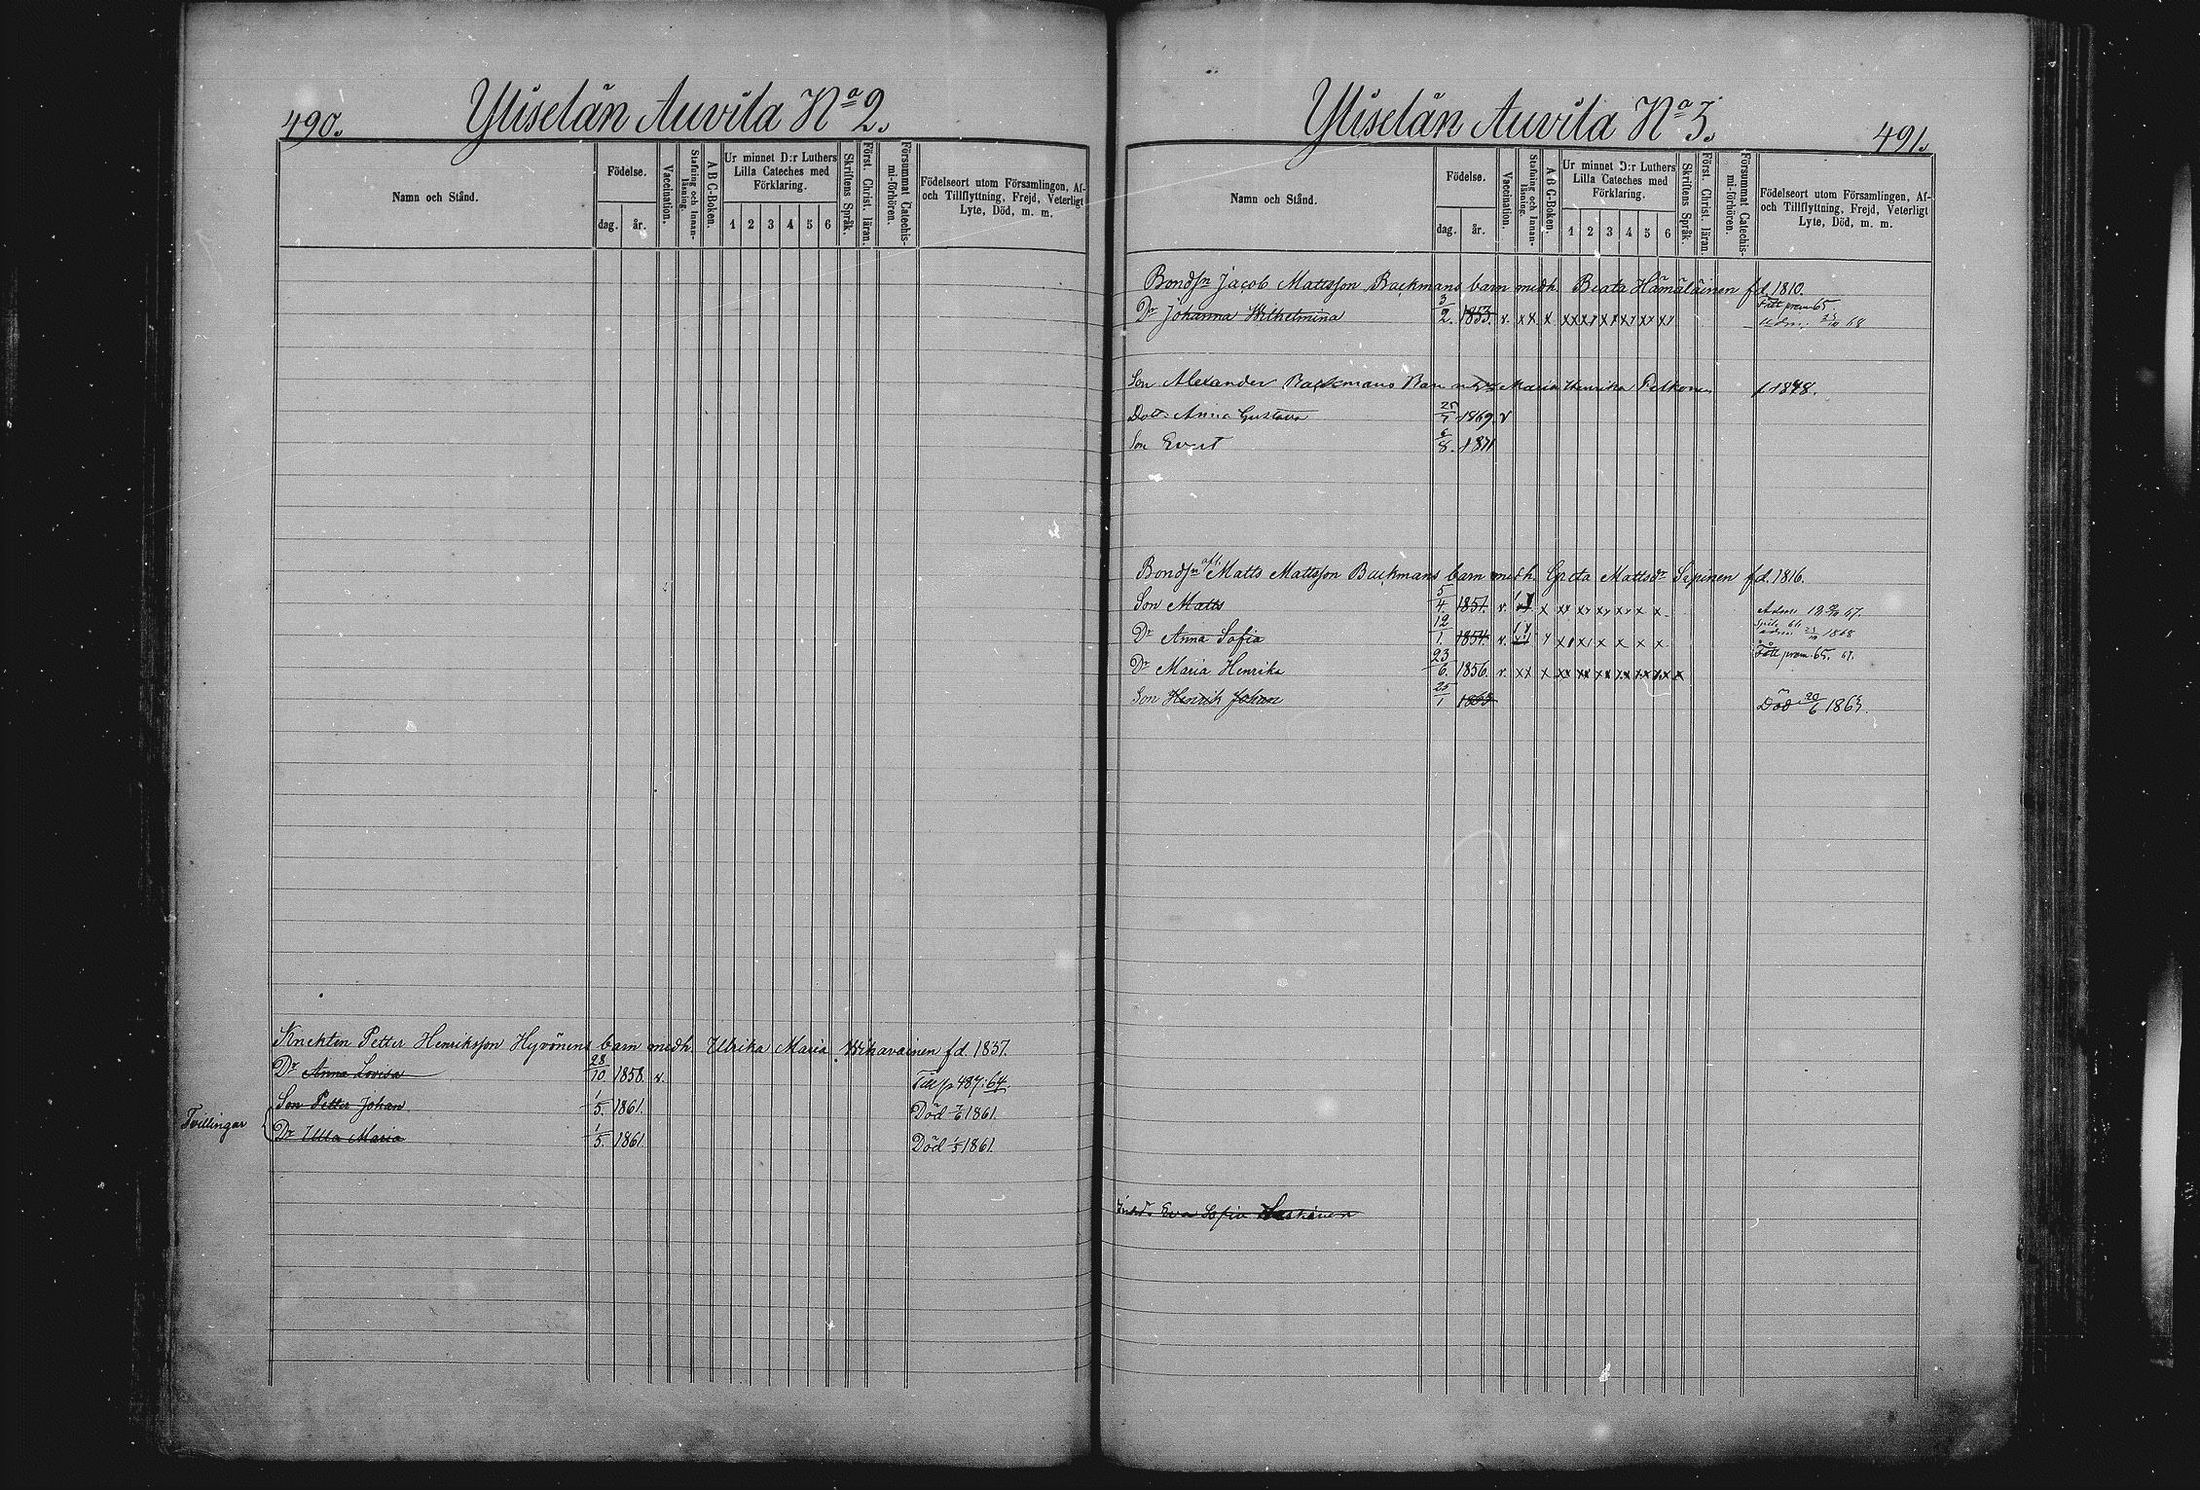 490.
Yliselän Auvila Nº 2.
Namn och Stånd.
Födelse.
dag.
år.
Vaccination.
Stafning och Innan-läsning.
A B C-Boken.
Ur minnet D:r Luthers
Lilla Cateches med
Förklaring.
1 2 3 4 5 6
Skriftens Språk.
Först. Christ. läran.
Försummat Catechis-mi-förhören.
Födelseort utom Församlingen, Af-
och Tillflyttning, Frejd, Veterligt
Lyte, Död, m. m.
Knekten Petter Henriksson Hyvönens barn medh. Ulrika Maria fd. 1837.
Dr Anna Lovisa 28/10. 1858. v. Till p 487: 64.
Tvillingar
Son Petter Johan 1/5. 1861. Död 7/6 1861.
Dr Ulla Maria 1/5. 1861. Död 1861.
Yliselän Auvila Nº 3.
491.
Namn och Stånd.
Födelse.
dag.
år.
Vaccination.
Stafning och Innan-läsning.
A B C-Boken.
Ur minnet D:r Luthers
Lilla Cateches med
Förklaring.
1 2 3 4 5 6
Skriftens Språk.
Först. Christ. läran.
Försummat Catechis-mi-förhören.
Födelseort utom Församlingen, Af-
och Tillflyttning, Frejd, Veterligt
Lyte, Död, m. m.
Bondsn Jacob Mattsson Backmans barn medh. Beata Hämäläinen fd. 1810.
Dr Johanna Wilhelmina 3/2. 1853. v. xx x xx xx xx xx xx xx Fått prem. 65
68
Son Alexander Backmans Barn Maria Henrika Pelkonen f. 1848.
Dott. Anna Gustava 25/7 1869 v
Son Evert 6/8. 1871
Bondsn afl. Matts Mattsson Backmans barn medh. Greta Mattsdr Sipinen fd. 1816.
Son Matts 5/4. 1851. v. x xx xx xx xx x x 67.
Dr Anna Sofia 12/1. 1854. v. 1868
Dr Maria Henrika 23/6. 1856. v. xx x xx xx xx xx xx xx x Fått prem. 65. 67.
Son Henrik Johan 25/1 1863 Död 20/6 1863.
Eva Sofia